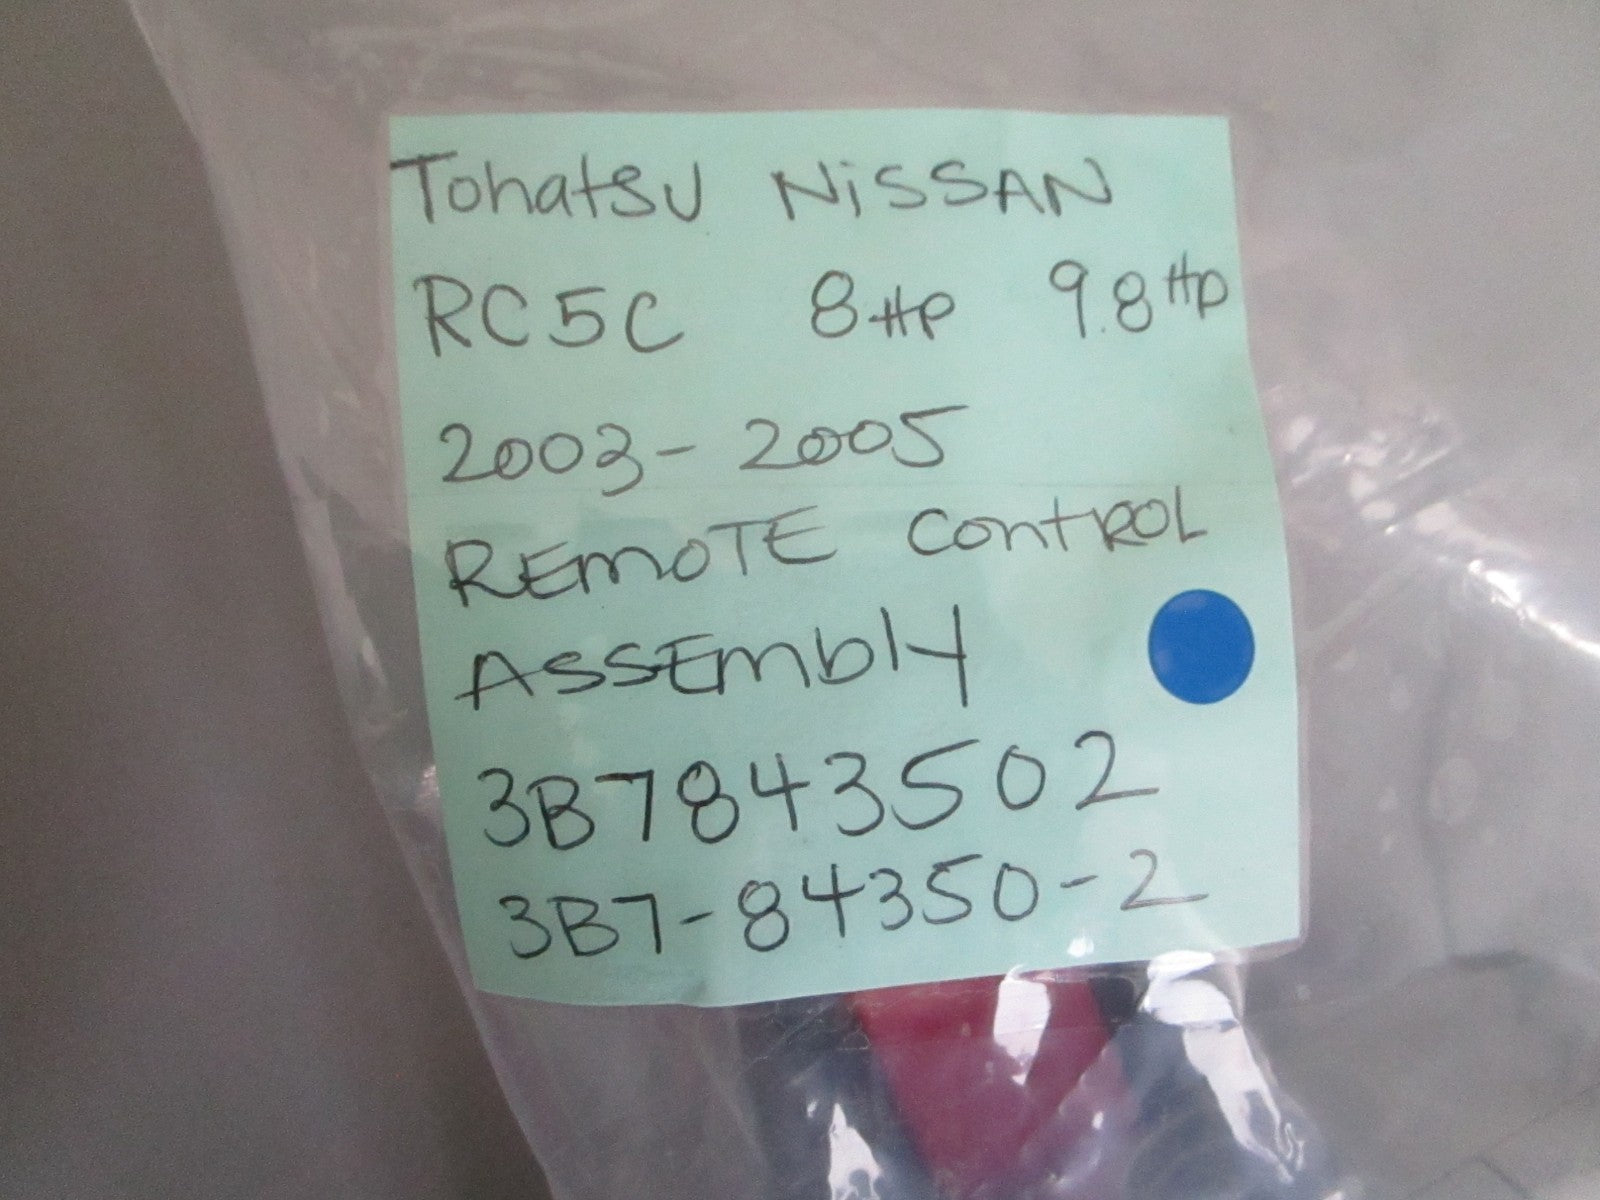 Tohatsu NiSSAN
RC5C 8HP 9.8HP
2003-2005
REmoTE ContROL
ASSEmblY
3B7843502
3B7-84350-2